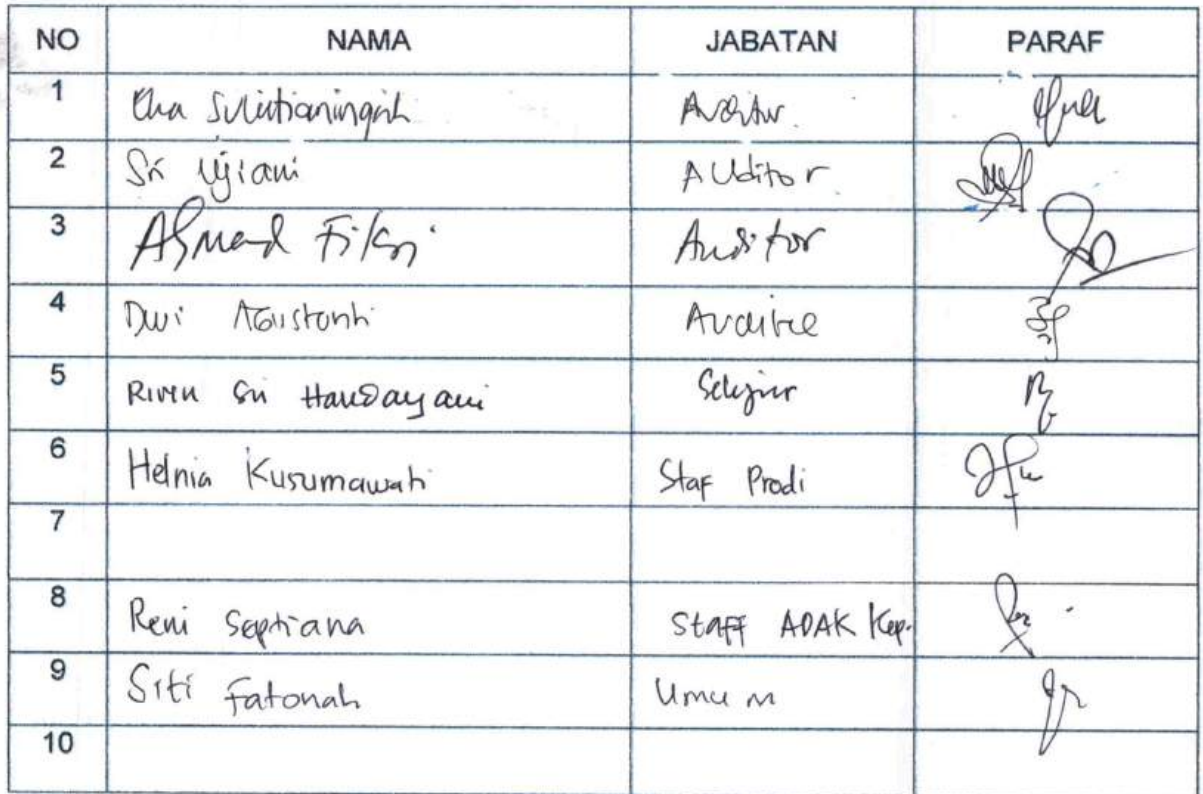 NO NAMA JABATAN PARAF
1 Eka Sulistianingsih Auditor
2 Sri Ujiani AUditor
3 Ahmad Fikri Auditor
4 Dwi Agustanti Auditee
5 Sri Handayani
6 Helnia Kusumawati Staf Prodi
7
8 Reni Septiana Staff ADAK Kep.
9 Siti Fatonah Umum
10